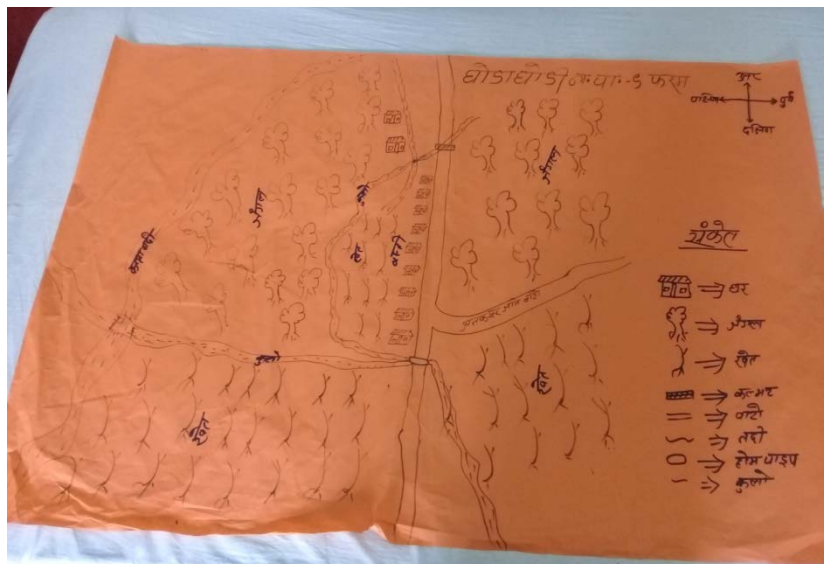 घोडाघोडी न.पा.-५ फस्रा
उत्तर
पश्चिम
पुर्व
दक्षिण
जंगल
जंगल
खेत
बस्ती
खेत
खेत
कुलो
संकेत
⇒ घर
⇒ जंगल
⇒ खेत
⇒ कल्भट
⇒ वाटो
⇒ नदी
⇒ होम पाइप
⇒ कुलो